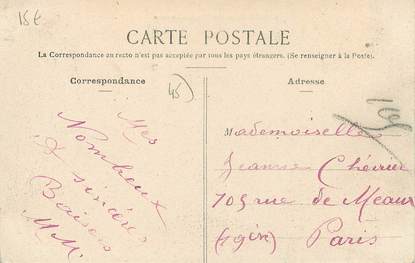 15€
CARTE POSTALE
La Correspondance au recto n'est pas acceptée par tous les pays étrangers. (Se renseigner à la Poste).
Correspondance
45
Adresse
Mes
Nombreux
& sincères
Baisers
M.M.
Mademoiselle
Jeanne Chévrier
105 rue de Meaux
Paris